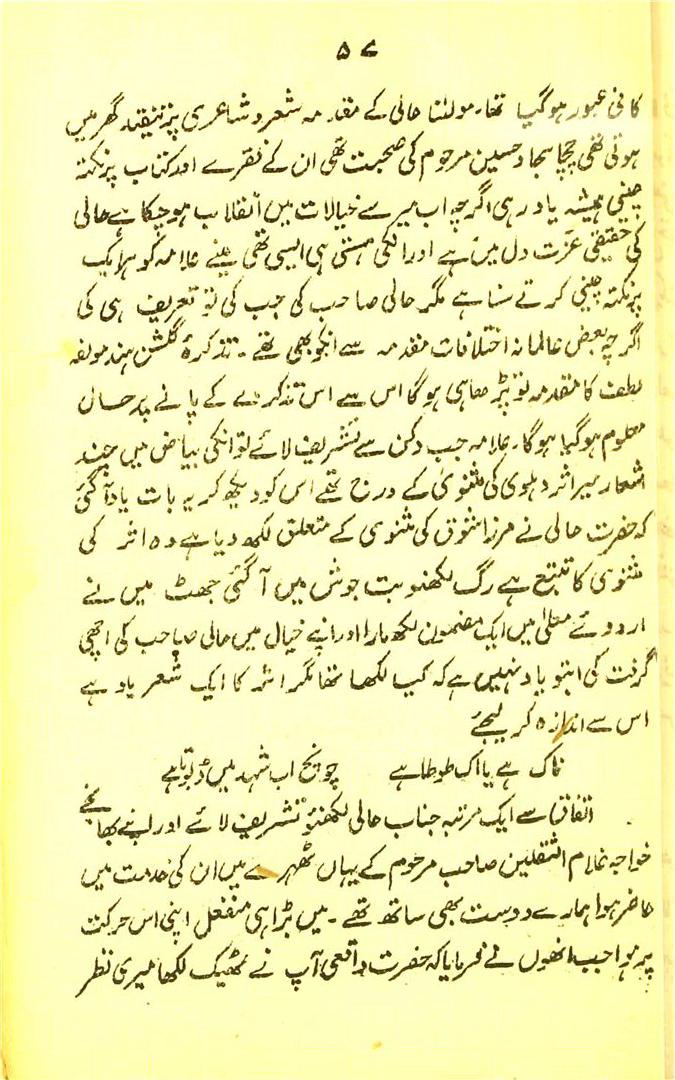 ۵۷
کافی عبور ہوگیا تھا۔ مولٰنا حالی کے مقدمہ شعر و شاعری پر تنقید گھر میں
ہوتی تھی چچا سجاد حسین مرحوم کی صحبت تھی ان کے فقرے اور کتاب پر نکتہ
چینی ہمیشہ یاد رہی اگرچہ اب میرے خیالات میں انقلاب ہوچکا ہے حالی
کی حقیقی عزت دل میں ہے اور انکی ہستی ہی ایسی تھی میں نے علامہ کو ہر ایک
پر نکتہ چینی کرتے سنا ہے مگر حالی صاحب کی جب کی تو تعریف ہی کی
اگرچہ بعض عالمانہ اختلافات مقدمہ سے انکو بھی تھے۔ تذکرۂ گلشن ہند مولفہ
لطف کا مقدمہ تو پڑھا ہی ہوگا اس سے اس تذکرے کے پانے پر حال
معلوم ہوگیا ہوگا۔ علامہ جب دکن سے تشریف لائے تو انکی بیاض میں چند
اشعار میر اثر دہلوی کی مثنوی کے درج تھے اس کو دیکھ کر یہ بات یاد آگئی
کہ حضرت حالی نے مرزا شوق کی مثنوی کے متعلق لکھ دیا ہے وہ اثر کی
مثنوی کا تتبع ہے رگ لکھنویت جوش میں آگئی جھٹ میں نے
اردوئے معلی میں ایک مضمون لکھ مارا اور اپنے خیال میں حالی صاحب کی اچھی
گرفت کی ابتو یاد نہیں ہے کہ کیا لکھا تھا مگر اثر کا ایک شعر یاد ہے
اس سے اندازہ کر لیجئے
ناک ہے یا اک طوطا ہے چونچ اب شہد میں ڈبوتا ہے
اتفاق سے ایک مرتبہ جناب حالی لکھنؤ تشریف لائے اور اپنے بھانجے
خواجہ غلام الثقلین صاحب مرحوم کے یہاں ٹھہرے میں ان کی خدمت میں
حاضر ہوا ہمارے دوست بھی ساتھ تھے۔ میں بڑا ہی منفعل اپنی اس حرکت
پر ہوا جب انھوں نے فرمایا کہ حضرت واقعی آپ نے ٹھیک لکھا میری نظر